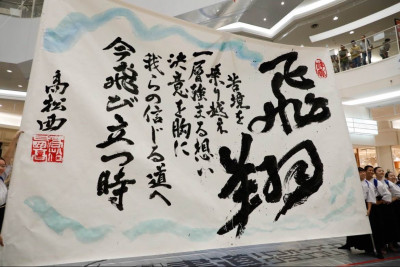 飛翔
苦境を
乗り越え
一層強まる想い
決意を胸に
我らの信じる道へ
今飛び立つ時
高松西